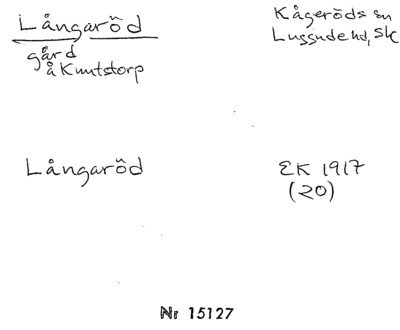 Långaröd
gård
å Knutstorp
Kågeröds sn
Luggude hd, Sk
Långaröd
EK 1917
(20)
Nr 15127